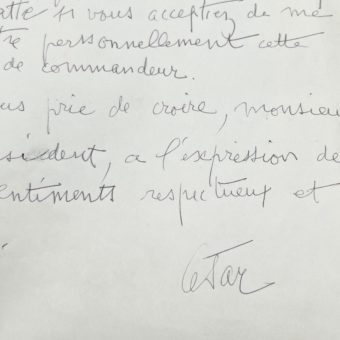 atté si vous acceptiez de me
tre personnellement cette
de commandeur.
us prie de croire, monsieu
sident, a l'expression de
entiments respectueux et
César